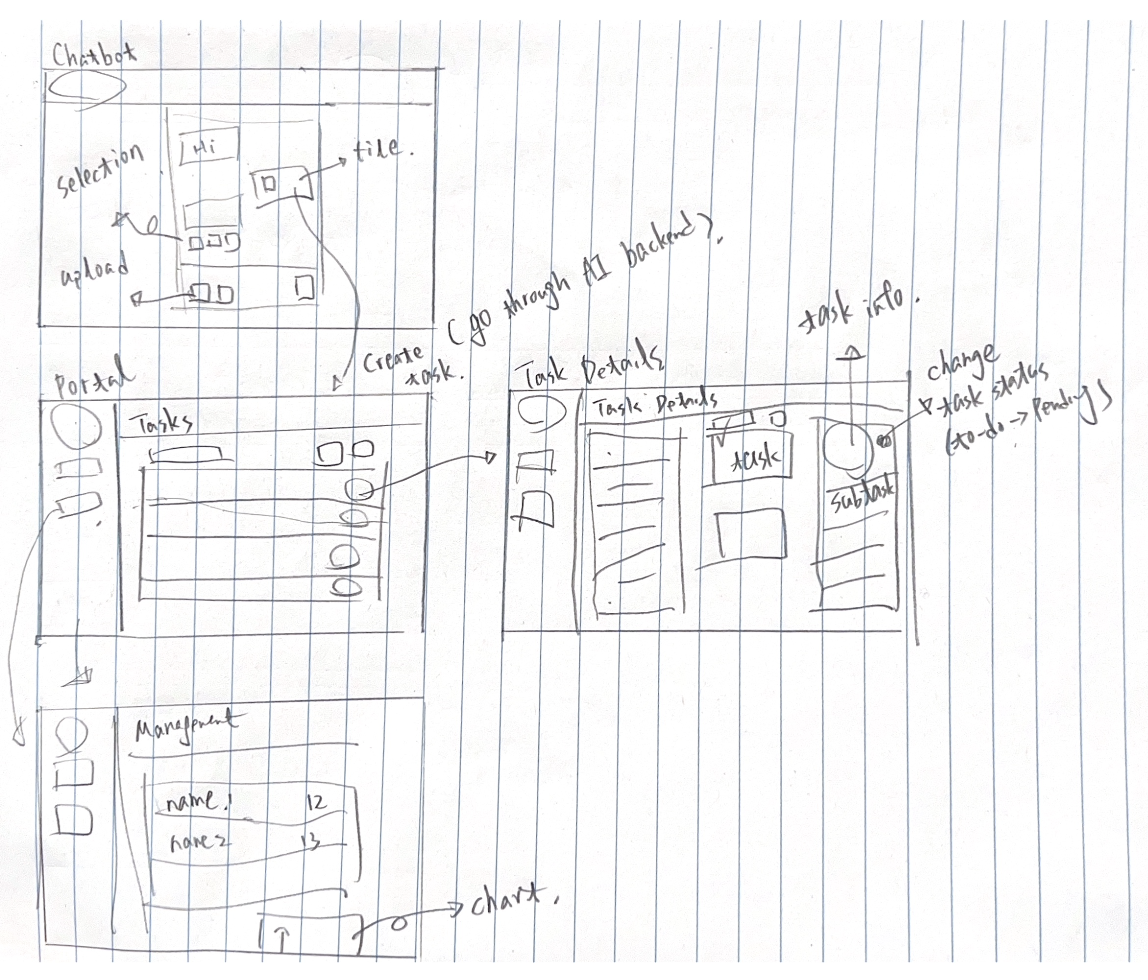 Chatbot
Hi
file.
selection
upload
Create
task.
(go through AI backend).
Portal
Tasks
Task Details
Task Details
task
subtask
task info.
change
task status
(to-do -> Pending)
Management
name1
12
name2
13
chart.